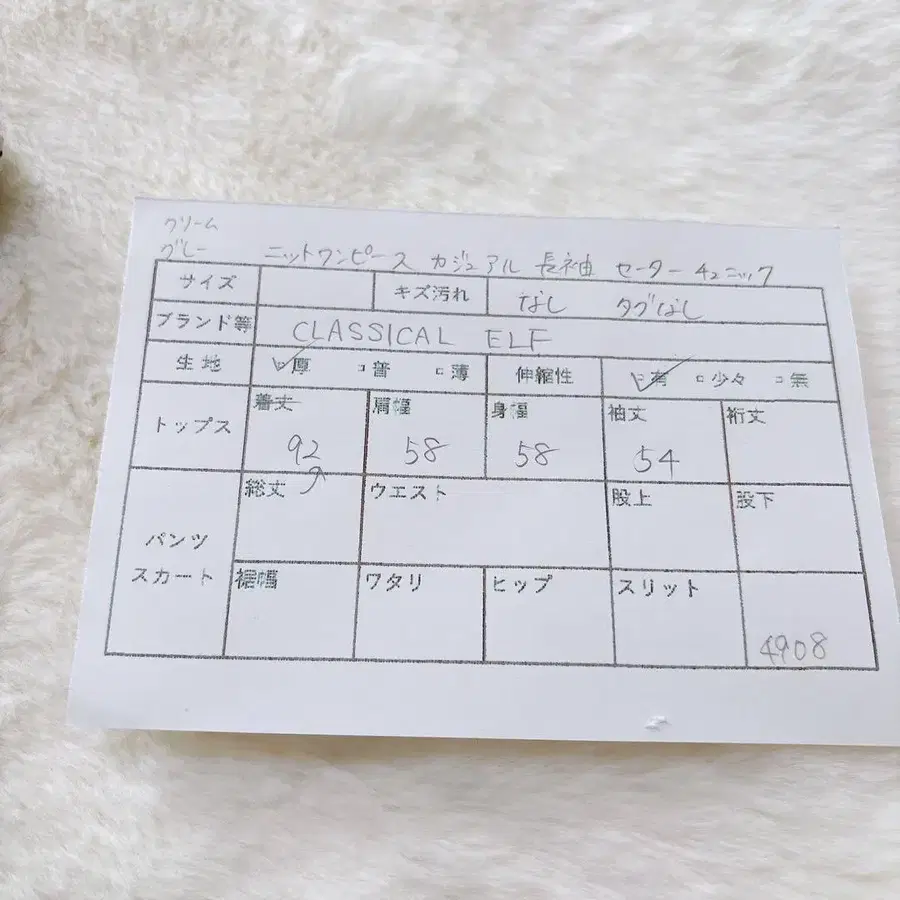 クリーム
グレー ニットワンピース カジュアル 長袖 セーター チュニック
サイズ キズ汚れ なし タグなし
ブランド等 CLASSICAL ELF
生地 ☑厚 □普 □薄 伸縮性 ☑有 □少々 □無
トップス 着丈 肩幅 身幅 袖丈 裄丈
92 58 58 54
パンツ スカート 総丈 ウエスト 股上 股下
裾幅 ワタリ ヒップ スリット
4908